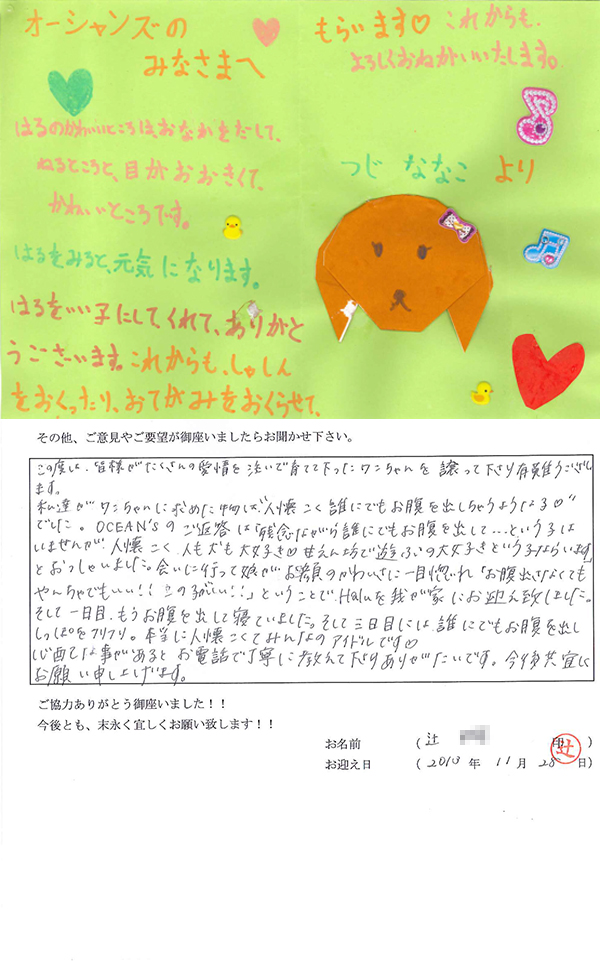 オーシャンズの
みなさまへ
はるのかわいいところは、おなかをだして、
ねるところと、目がおおきくて、
かわいいところです。
はるをみると、元気になります。
はるをいい子にしてくれて、ありがと
うございます。これからも、しゃしん
をおくったり、おてがみをおくらせて、
もらいます♡ これからも、
よろしくおねがいいたします。
つじ ななこ より
その他、ご意見やご要望が御座いましたらお聞かせ下さい。
この度は、皆様がたくさんの愛情を注いで育てて下さったワンちゃんを譲って下さり有難うござい
ます。
私達がワンちゃんに求めた事は"人懐こく誰にでもお腹を出しちゃうような子♡"
でした。OCEAN'sのご返答は「残念ながら誰にでもお腹を出して…という子は
いませんが、人懐こく、人も犬も大好き♡甘えん坊で遊ぶの大好きという子ならいます」
とおっしゃいました。会いに行って娘がお顔のかわいさに一目惚れ「お腹出さなくても
やんちゃでもいい!!この子がいい!!」ということで、Haluを我が家にお迎え致しました。
そして一日目、もうお腹を出して寝ていました。そして三日目には、誰にでもお腹を出し
しっぽをフリフリ。本当に人懐こくてみんなのアイドルです♡
心配な事があるとお電話で丁寧に教えて下さりありがたいです。今後共宜しく
お願い申し上げます。
ご協力ありがとう御座いました！！
今後とも、末永く宜しくお願い致します！！
お名前 (辻 印)
辻
お迎え日 (2013年 11月 28日)